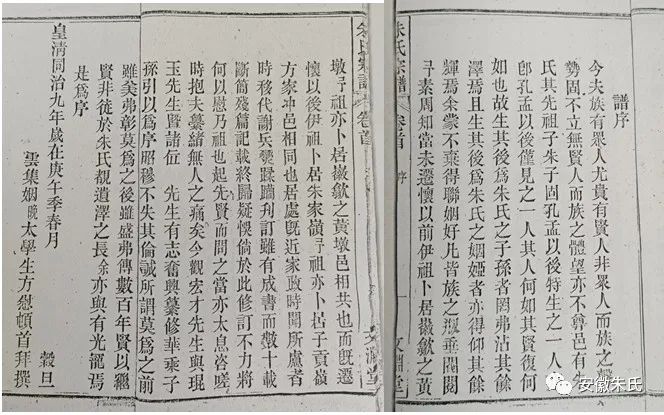 譜序
今夫族有衆人尤貴有賢人非衆人而族之聲
勢固不立無賢人而族之體望亦不尊邑有朱
氏其先祖子朱子固孔孟以後特生之一人亦
卽孔孟以後僅見之一人其人何如其賢復何
如也故生其後爲朱氏之子孫者罔弗沾其餘
澤焉且生其後爲朱氏之姻婭者亦得仰其餘
輝焉余蒙不棄得聯姻好凡皆族之淑垂閥閱
予素周知當未遷懷以前伊祖卜居嶶歙之黃
朱氏宗譜 卷首 序 文淵堂
朱氏宗譜 卷首 文淵堂
墩予祖亦卜居嶶歙之黃墩邑相共也而旣遷
懷以後伊祖卜居朱家嶺予祖亦卜居子貢嶺
方家冲邑相同也居處旣近家政時聞所慮者
時移代謝兵燹蹂躪刋訂雖有成書而數十載
斷簡殘篇記載終歸疑悞倘於此修訂不力將
何以慰乃祖也起先賢而問之當亦太息咨嗟
時抱夫纂緒無人之痛矣今觀宏才先生與琨
玉先生暨諸位 先生有志奮興纂修華乘子
孫引以爲序昭穆不失其倫誠所謂莫爲之前
雖美弗彰莫爲之後雖盛弗傳數百年賢以繼
賢非徒於朱氏覩遺澤之長余亦與有光寵焉
是爲序
皇清同治九年歲在庚午季春月 穀旦
雲集姻晚太學生方慰頓首拜撰
安徽朱氏